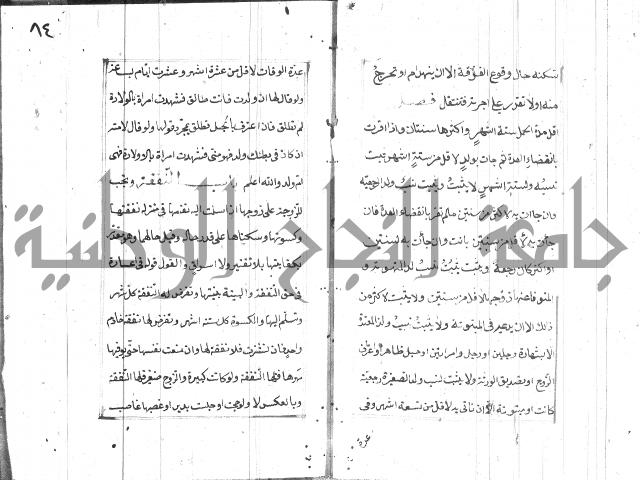 تسكنه حال وقوع الفرقة الا ان ينهدم او تخرج
منه او لا تقدر على اجرته فتنتقل فصل
اقل مدة الحمل ستة اشهر واكثرها سنتان واذا اقرت
بانقضاء العدة ثم جات بولد لاقل من ستة اشهر يثبت
نسبه ولستة اشهر لا يثبت ويثبت نسب ولد الرجعية
وان جات به لاكثر من سنتين ما لم تقر بانقضاء العدة فان
جات به لاقل من سنتين بانت وان جات به لسنتين
او اكثر كان رجعة ويثبت نسب ولد المبتوتة و
المتوفى عنها زوجها لاقل من سنتين ولا يثبت لاكثر من
ذلك الا ان يدعيه في المبتوتة ولا يثبت نسب ولد المعتدة
الا بشهادة رجلين او رجل وامراتين او حبل ظاهر او اعترف
الزوج او تصديق الورثة ولا يثبت نسب ولد الصغيرة رجعية
كانت او مبتوتة الا ان تاتي به لاقل من تسعة اشهر وفي
عدة
٨٤
عدة الوفات لاقل من عشرة اشهر وعشرة ايام
ولو قال لها ان ولدت فانت طالق فشهدت امراة بالولادة
لم تطلق فان اعترف بالحبل تطلق بمجرد قولها ولو قال لامته
ان كان في بطنك ولد فهو مني فشهدت امراة بالولادة فهي
ام ولد والله اعلم باب النفقة وتجب
للزوجة على زوجها اذا سلمت اليه نفسها في منزله نفقتها
وكسوتها وسكناها على قدر حاله وقيل حالهما وهو مقدر
بكفايتها بلا تقتير ولا اسراف والقول قوله في اعساره
في حق النفقة والبينة بينتها وتفرض لها النفقة كل شهر
وتسلم اليها والكسوة كل ستة اشهر وتفرض لها نفقة خادم
واحد فان نشزت فلا نفقة لها وان منعت نفسها حتى يوفيها
مهرها فلها النفقة ولو كانت كبيرة والزوج صغير فلها النفقة
وبالعكس لا ولو حجت او حبست بدين او غصبها غاصب
جامعة النجاح الوطنية